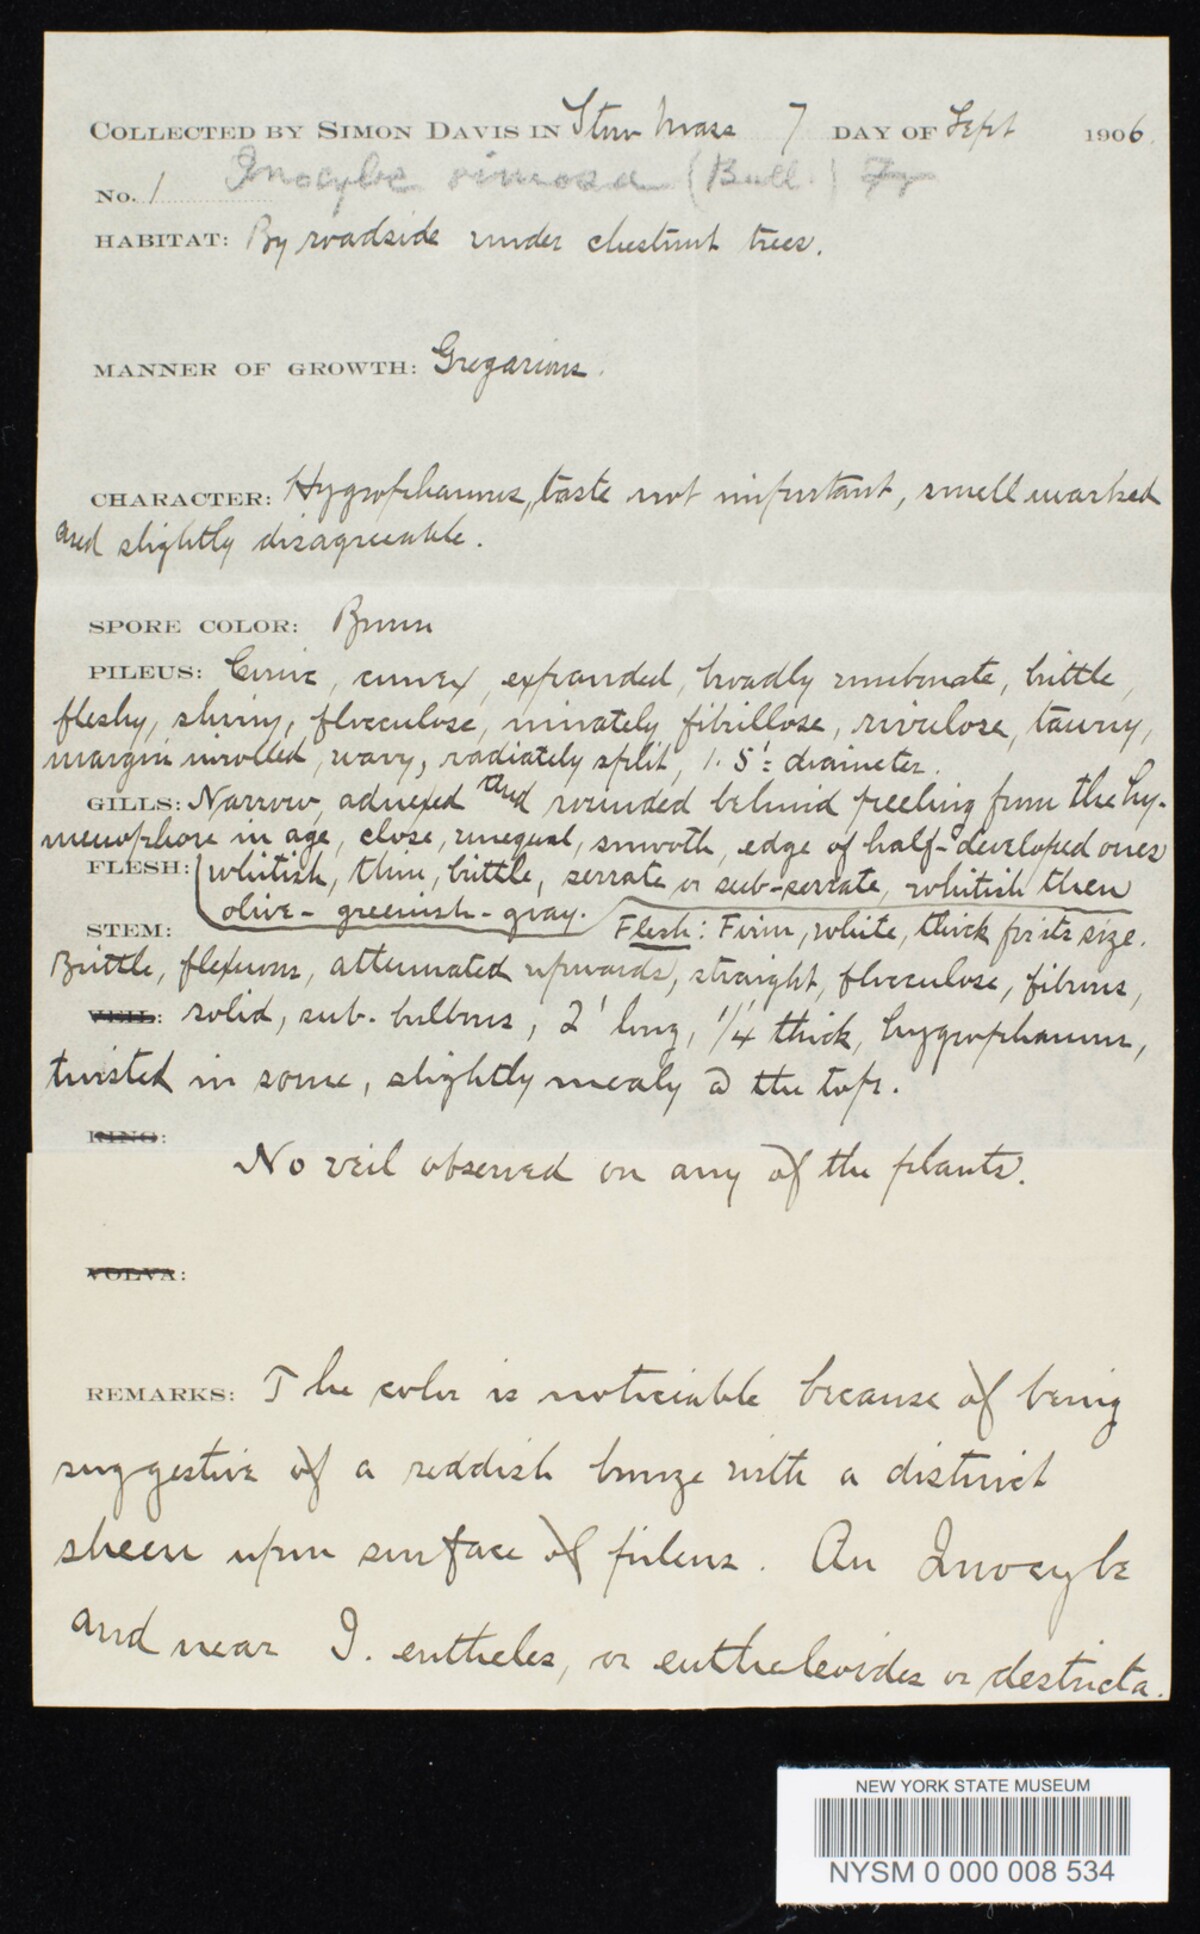 COLLECTED BY SIMON DAVIS IN Stow Mass 7 DAY OF Sept 1906.
Inocybe rimosa (Bull.) Fr
No. 1
HABITAT: By roadside under chestnut trees.
MANNER OF GROWTH: Gregarious.
CHARACTER: Hygrophanous, taste not important, smell marked
and slightly disagreeable.
SPORE COLOR: Brown
PILEUS: Conic, convex, expanded, broadly umbonate, brittle,
fleshy, shiny, flocculose, innately fibrillose, rivulose, tawny,
margin inrolled, wavy, radiately split, 1.5' = diameter.
GILLS: Narrow, adnexed and rounded behind freeling from the hy-
menophore in age, close, unequal, smooth, edge of half-developed ones
FLESH: whitish, thin, brittle, serrate or sub-serrate, whitish then
olive-greenish-gray.
Flesh: Firm, white, thick for its size.
STEM:
Brittle, flexuous, attenuated upwards, straight, flocculose, fibrous,
VEIL: solid, sub-bulbous, 2' long, 1/4 thick, hygrophanous,
twisted in some, slightly mealy @ the top.
RING:
No veil observed on any of the plants.
VOLVA:
REMARKS: The color is noticiable because of being
suggestive of a reddish bronze with a distinct
sheen upon surface of pileus. An Inocybe
and near I. eutheles, or eutheleoides or destricta.
NEW YORK STATE MUSEUM
NYSM 0 000 008 534